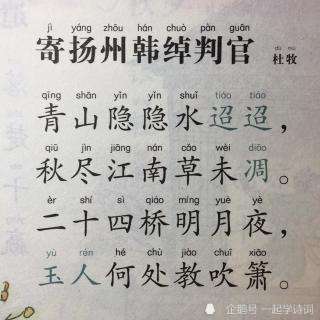 jì yáng zhōu hán chuò pàn guān
寄扬州韩绰判官
dù mù
杜牧
qīng shān yǐn yǐn shuǐ tiáo tiáo
青山隐隐水迢迢，
qiū jìn jiāng nán cǎo wèi diāo
秋尽江南草未凋。
èr shí sì qiáo míng yuè yè
二十四桥明月夜，
yù rén hé chù jiāo chuī xiāo
玉人何处教吹箫。
企鹅号 一起学诗词